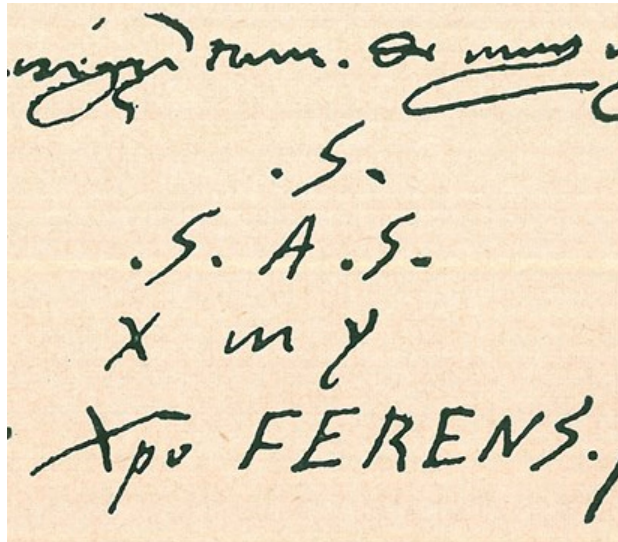 .S.
.S. A .S.
X m y
Xpo FERENS.